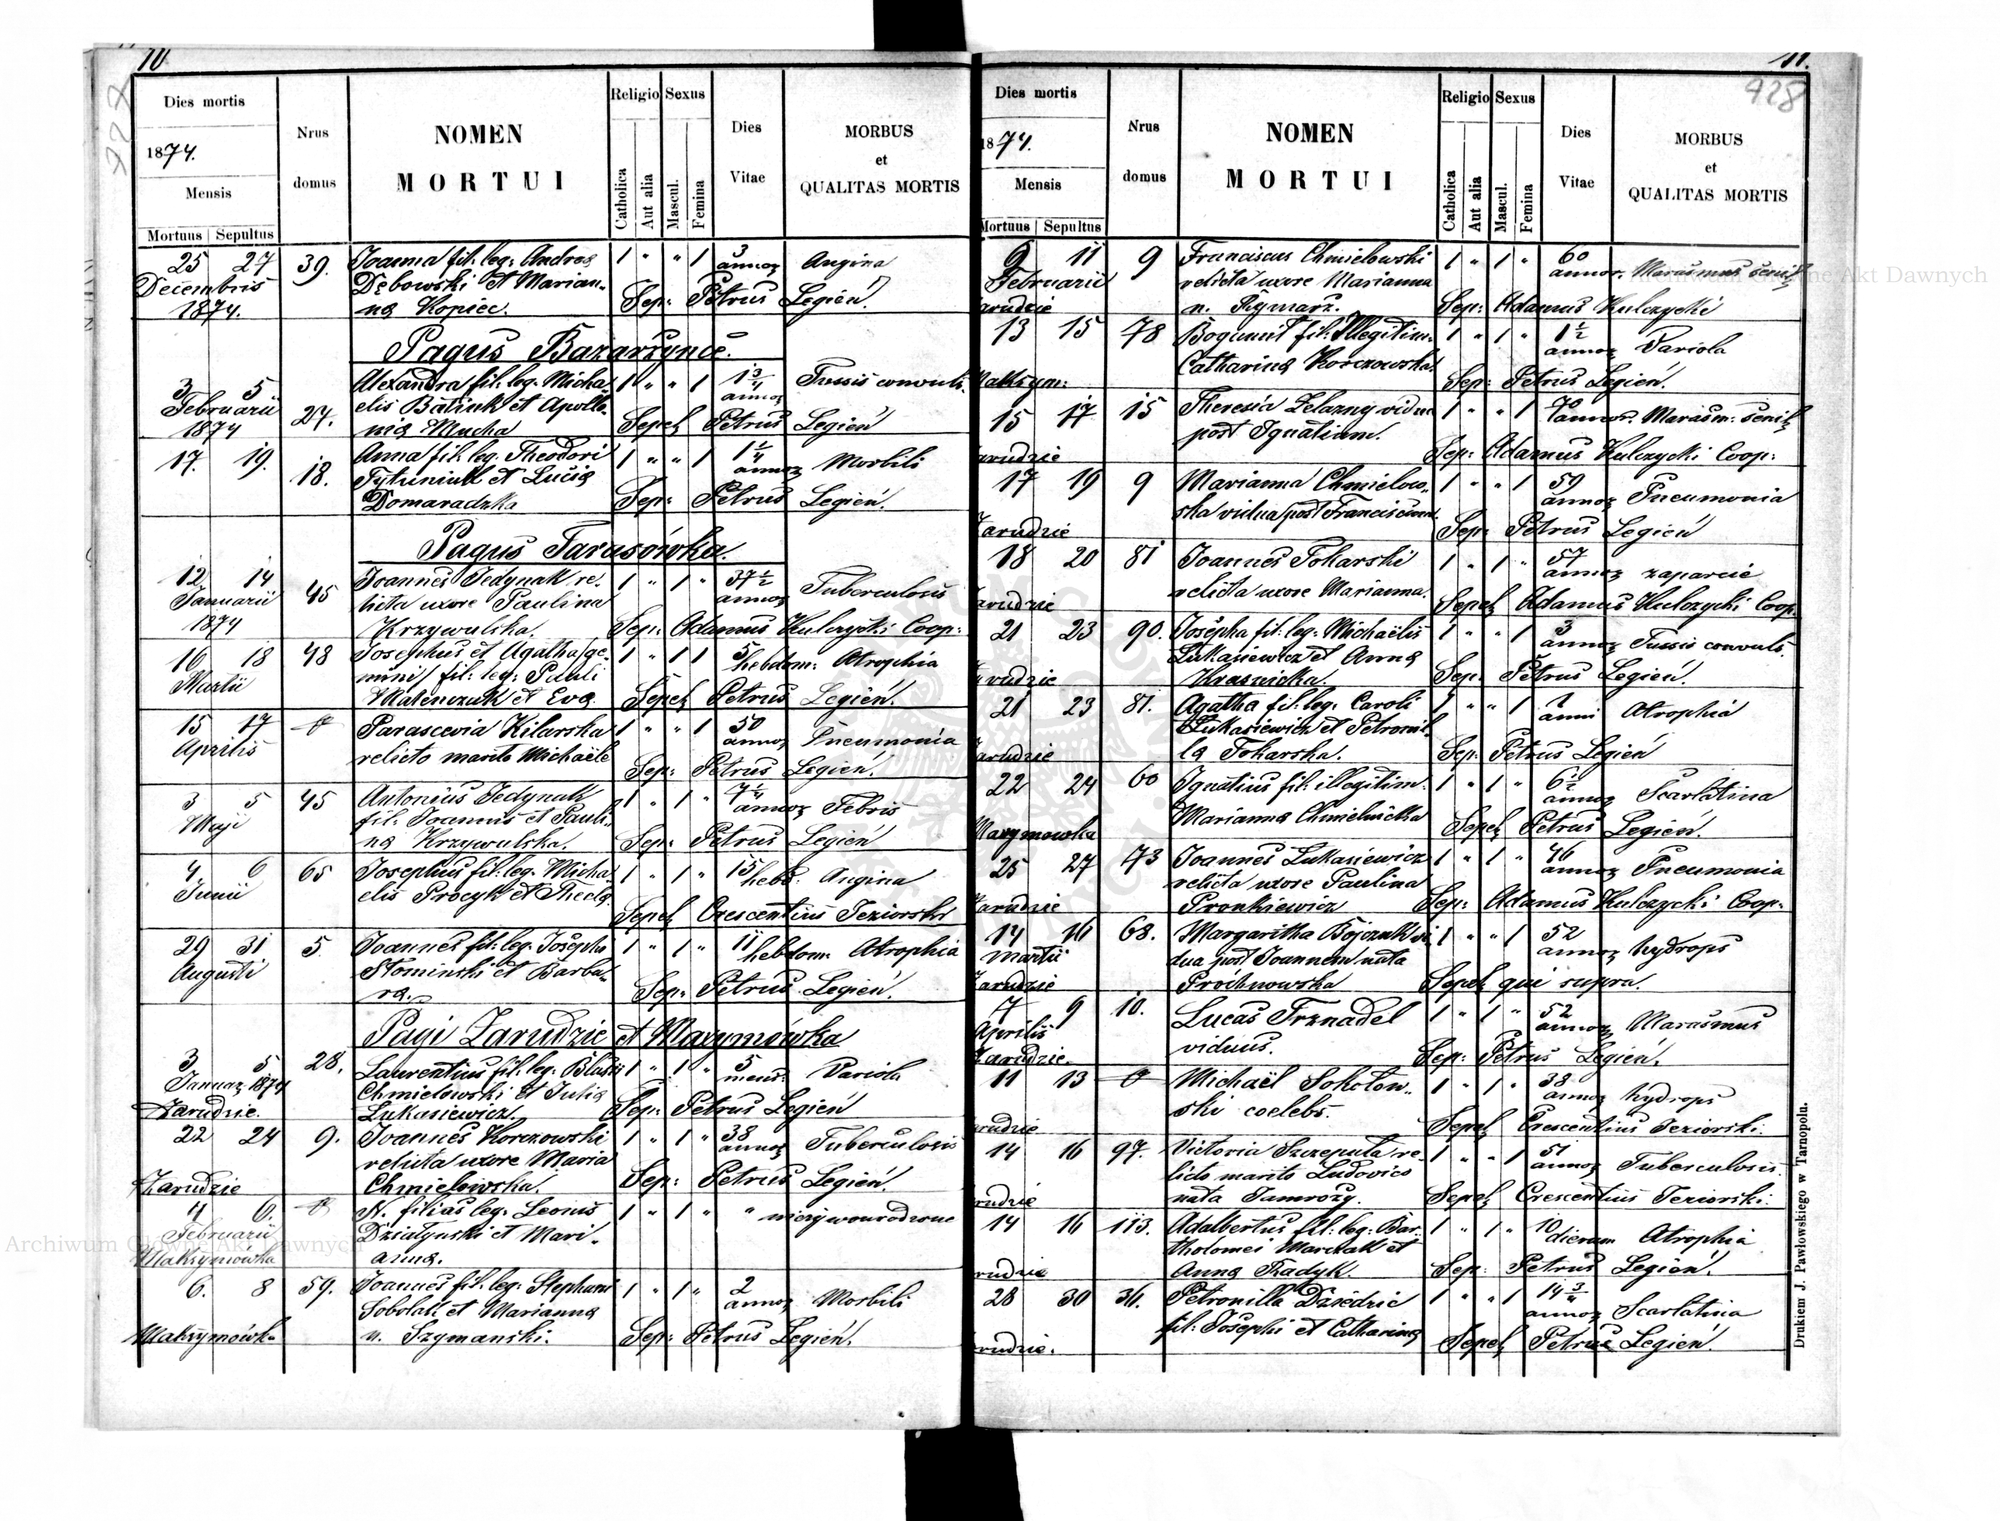 10
Dies mortis
1874.
Mensis
Mortuus Sepultus
Nrus domus
NOMEN
MORTUI
Religio
Catholica
Aut alia
Sexus
Mascul.
Femina
Dies Vitae
MORBUS
et
QUALITAS MORTIS
25 27 39. Joanna fil: leg: Andreą 1 " " 1 3 Angina
Decembris Dębowski et Marian- annoꝝ
1874. ną Kopiec. Sep: Petrus Legień
Pagus Bazarzyńce.
3 5 Alexandra fil: leg: Micha- 1 " " 1 1 3/4 Tussis convuls.
Februarii 27. elis Batiuk et Apollo- annoꝝ
1874 nią Mucha Sepel Petrus Legień
17. 19. 18. Anna fil: leg: Theodori 1 " " 1 1 1/4 Morbili
Tytuniuk et Lucią annoꝝ
Domaradzka Sep: Petrus Legień.
Pagus Tarasówka.
12 14 45 Joannes Jedynak re- 1 " 1 " 37 1/2 Tuberculosis
Januarii licta uxore Paulina annoꝝ
1874 Krzywulska. Sep: Adamus Kulczycki Coop:
16 18 48 Josephus et Agatha ge- 1 " 1 1 5 Atrophia
Martii mini fil: leg: Pauli hebdom:
et Evą Sepel Petrus Legień.
15 17 Parascevia Kilarska 1 " " 1 50 Pneumonia
Aprilis relicto marito Michaële annoꝝ
Sep: Petrus Legień.
3 5 45 Antonius Jedynak 1 " 1 " 7 1/4 Febris
Maji fil: Joannis et Pauli- annoꝝ
ną Krzywulska. Sep: Petrus Legień
4 6 65 Josephus fil: leg: Micha- 1 " 1 " 15 Angina
Junii elis Procyk et Theclą hebd.
Sepel Crescentius Jeziorski
29 31 5. Joannes fil: leg: Josephi 1 " 1 " 11 Atrophia
Augusti Słominski et Barba- hebdom:
rą. Sep: Petrus Legień.
Pagi Zarudzie et Maxymówka
3 5 28. Laurentius fil: leg: Blasii 1 " 1 " 5 Variola
Januar 1874 Chmielowski et Julią mens.
Zarudzie. Łukasiewicz. Sep: Petrus Legień
22 24 9. Joannes Korczowski 1 " 1 " 38 Tuberculosis
relicta uxore Maria annoꝝ
Zarudzie Chmielowska. Sep: Petrus Legień.
4 6. N. filias leg: Leonis 1 " 1 " " nieżywourodzone
Februarii Działynski et Mari-
Maksymówka anną.
6. 8 59. Joannes fil: leg: Stephani 1 " 1 " 2 Morbili
Sobolak et Marianną annoꝝ
Maksymówka n. Szymanski. Sep: Petrus Legień.
11.
928
Dies mortis
1874.
Mensis
Mortuus Sepultus
Nrus domus
NOMEN
MORTUI
Religio
Catholica
Aut alia
Sexus
Mascul.
Femina
Dies Vitae
MORBUS
et
QUALITAS MORTIS
9 11 9 Franciscus Chmielowski 1 " 1 " 60 Marasmus senil
Februarii relicta uxore Marianna annor.
Zarudzie n. Rymarz. Sep: Adamus Kulczycki
13 15 78 Bogumił fil: Illegitim: 1 " 1 " 1 1/2 Variola
Catharină Korczowska. annoꝝ
Maksym: Sep: Petrus Legień.
15 17 15 Theresia Zelazny vidua 1 " " 1 70 Marasm: senil
post Ignatium. annor.
Zarudzie Sep: Adamus Kulczycki Coop:
17 19 9 Marianna Chmielow- 1 " " 1 59 Pneumonia
ska vidua post Franciscum annoꝝ
Zarudzie Sep: Petrus Legień
18 20 81 Joannes Tokarski 1 " 1 " 57 zaparcie
relicta uxore Marianna. annoꝝ
Zarudzie Sepel Adamus Kulczycki Coop.
21 23 90. Josepha fil: leg: Michaëlis 1 " " 1 3 Tussis convuls.
Łukasiewicz et Anną annoꝝ
Zarudzie Kraswicka. Sep. Petrus Legień.
21 23 81. Agatha fil: leg: Caroli 1 " " 1 1 Atrophia
Łukasiewicz et Petronil- anni
Zarudzie lą Tokarska. Sep: Petrus Legień
22 24 60 Ignatius fil: illegitim: 1 " 1 " 6 1/2 Scarlatina
Marianną Chmielnicka annoꝝ
Maxymowka Sepel Petrus Legień.
25 27 73 Joannes Łukasiewicz 1 " 1 " 46 Pneumonia
relicta uxore Paulina annoꝝ
Zarudzie Pronkiewicz Sep: Adamus Kulczycki Coop.
14 16 68. Margaritha Bojczuk vi- 1 " " 1 52 hydrops
Martii dua post Joannem nata annoꝝ
Zarudzie Próchnowska Sepel qui supra.
7 9 10. Lucas Trznadel 1 " 1 " 52 Marasmus
Aprilis viduus. annoꝝ
Zarudzie. Sep: Petrus Legień.
11 13 Michaël Sokołow- 1 " 1 " 38 hydrops
ski coelebs. annoꝝ
Zarudzie Sepel Crescentius Jeziorski.
14 16 97. Victoria Szczeputa re- 1 " " 1 51 Tuberculosis.
licto marito Ludovico annoꝝ
Zarudzie nata Jamroży. Sepel Crescentius Jeziorski:
14 16 113. Adalbertus fil: leg: Bar- 1 " 1 " 10 Atrophia
tholomei Marciak et dierum
Zarudzie Anną Radyk. Sep: Petrus Legień.
28 30 34. Petronilla Dziedzic 1 " " 1 14 3/4 Scarlatina
fil: Josephi et Catharină annoꝝ
Zarudzie. Sepel Petrus Legień.
Drukiem J. Pawłowskiego w Tarnopolu.
Archiwum Główne Akt Dawnych
Archiwum Główne Akt Dawnych